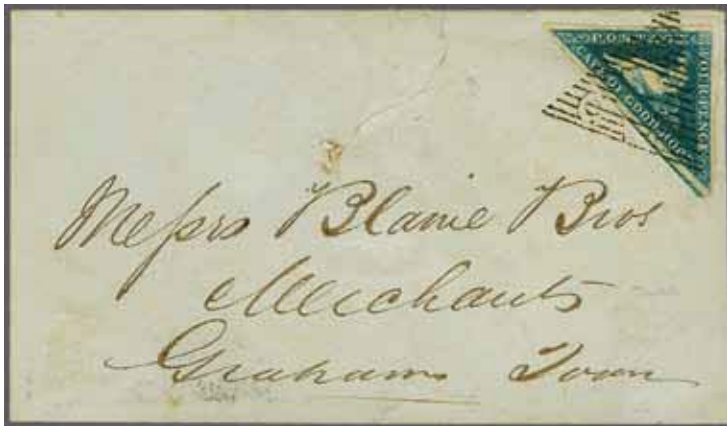 POSTAGE
FOUR PENCE
CAPE OF GOOD HOPE
Messrs Blaine Bros
Merchants
Grahams Town